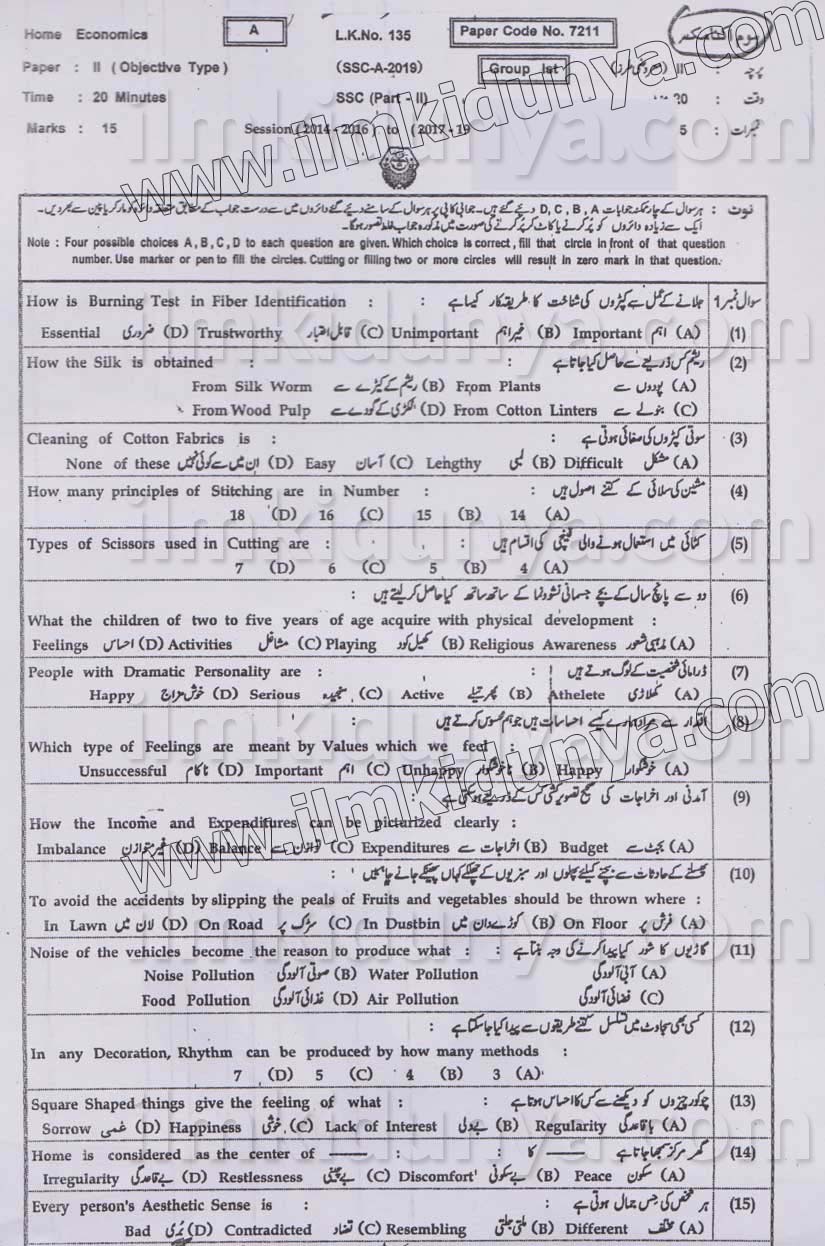 Home Economics A L.K.No. 135 Paper Code No. 7211
Paper : II ( Objective Type ) (SSC-A-2019) Group Ist
Time : 20 Minutes SSC (Part - II) وقت :
Marks : 15 Session (2014 - 2016) to (2017 - 19 نمبرات :
www.ilmkidunya.com
نوٹ : ہر سوال کے چار ممکنہ جوابات D, C, B, A دیئے گئے ہیں۔ جوابی کاپی پر ہر سوال کے سامنے دیئے گئے دائروں میں سے درست جواب کے مطابق متعلقہ دائرہ کو مارکر یا پین سے بھر دیں۔
ایک سے زیادہ دائروں کو پُر کرنے یا کاٹ کر پُر کرنے کی صورت میں مذکورہ جواب غلط تصور ہوگا۔
Note : Four possible choices A, B, C, D to each question are given. Which choice is correct, fill that circle in front of that question
number. Use marker or pen to fill the circles. Cutting or filling two or more circles will result in zero mark in that question.
How is Burning Test in Fiber Identification : جلانے کے عمل سے کپڑوں کی شناخت کا طریقہ کار کیسا ہے : سوال نمبر 1
Essential ضروری (D) Trustworthy قابل اعتبار (C) Unimportant غیر اہم (B) Important اہم (A) (1)
How the Silk is obtained : ریشم کس ذریعے سے حاصل کیا جاتا ہے : (2)
From Silk Worm ریشم کے کیڑے سے (B) From Plants پودوں سے (A)
From Wood Pulp لکڑی کے گودے سے (D) From Cotton Linters بنولے سے (C)
Cleaning of Cotton Fabrics is : سوتی کپڑوں کی صفائی ہوتی ہے : (3)
None of these ان میں سے کوئی نہیں (D) Easy آسان (C) Lengthy لمبی (B) Difficult مشکل (A)
How many principles of Stitching are in Number : مشین کی سلائی کے کتنے اصول ہیں : (4)
18 (D) 16 (C) 15 (B) 14 (A)
Types of Scissors used in Cutting are : کٹائی میں استعمال ہونے والی قینچی کی اقسام ہیں : (5)
7 (D) 6 (C) 5 (B) 4 (A)
دو سے پانچ سال کے بچے جسمانی نشوونما کے ساتھ ساتھ کیا حاصل کر لیتے ہیں : (6)
What the children of two to five years of age acquire with physical development :
Feelings احساس (D) Activities مشاغل (C) Playing کھیل کود (B) Religious Awareness مذہبی شعور (A)
People with Dramatic Personality are : ڈرامائی شخصیت کے لوگ ہوتے ہیں : (7)
Happy خوش مزاج (D) Serious سنجیدہ (C) Active پھرتیلے (B) Athelete کھلاڑی (A)
اقدار سے مراد ہمارے کیسے احساسات ہیں جو ہم محسوس کرتے ہیں : (8)
Which type of Feelings are meant by Values which we feel :
Unsuccessful ناکام (D) Important اہم (C) Unhappy ناخوشگوار (B) Happy خوشگوار (A)
آمدنی اور اخراجات کی صحیح تصویر کشی کس کے ذریعے ہو سکتی ہے : (9)
How the Income and Expenditures can be picturized clearly :
Imbalance غیر متوازن (D) Balance توازن سے (C) Expenditures اخراجات سے (B) Budget بجٹ سے (A)
پھسلنے کے حادثات سے بچنے کیلئے پھلوں اور سبزیوں کے چھلکے کہاں پھینکے جانے چاہئیں : (10)
To avoid the accidents by slipping the peals of Fruits and vegetables should be thrown where :
In Lawn لان میں (D) On Road سڑک پر (C) In Dustbin کوڑے دان میں (B) On Floor فرش پر (A)
Noise of the vehicles become the reason to produce what : گاڑیوں کا شور کیا پیدا کرنے کی وجہ بنتا ہے : (11)
Noise Pollution صوتی آلودگی (B) Water Pollution آبی آلودگی (A)
Food Pollution غذائی آلودگی (D) Air Pollution فضائی آلودگی (C)
کسی بھی سجاوٹ میں تسلسل کتنے طریقوں سے پیدا کیا جا سکتا ہے : (12)
In any Decoration, Rhythm can be produced by how many methods :
7 (D) 5 (C) 4 (B) 3 (A)
Square Shaped things give the feeling of what : چوکور چیزوں کو دیکھنے سے کس کا احساس ہوتا ہے : (13)
Sorrow غمی (D) Happiness خوشی (C) Lack of Interest بے دلی (B) Regularity باقاعدگی (A)
Home is considered as the center of —— : گھر مرکز سمجھا جاتا ہے —— کا : (14)
Irregularity بے قاعدگی (D) Restlessness بے چینی (C) Discomfort بے سکونی (B) Peace سکون (A)
Every person's Aesthetic Sense is : ہر شخص کی حس جمال ہوتی ہے : (15)
Bad بُری (D) Contradicted تضاد (C) Resembling ملتی جلتی (B) Different مختلف (A)